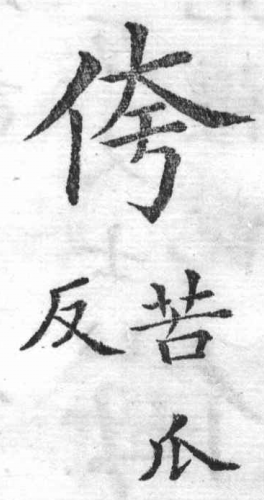 侉
苦瓜
反